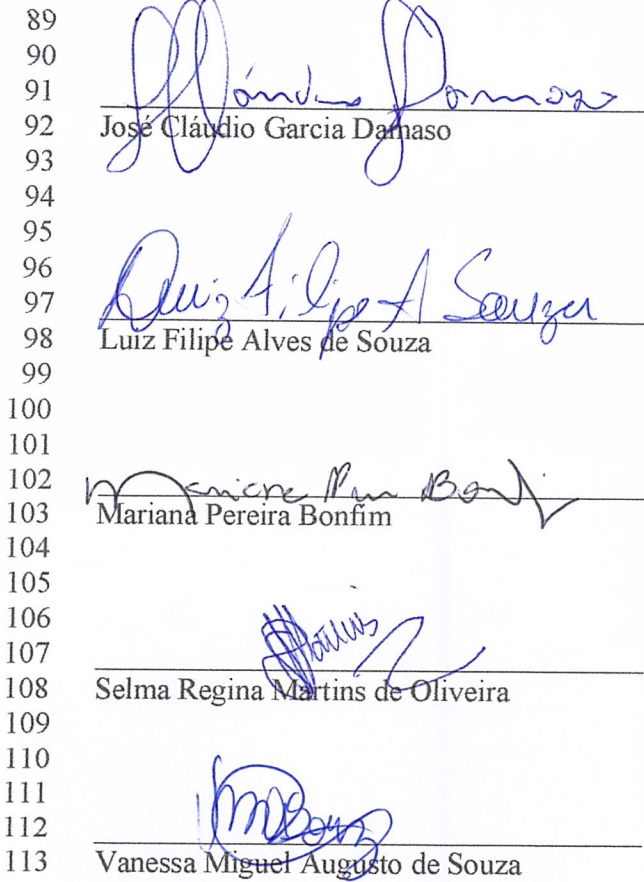 89
90
91
92 José Cláudio Garcia Damaso
93
94
95
96
97 Luiz Filipe A Souza
98 Luiz Filipe Alves de Souza
99
100
101
102
103 Mariana Pereira Bonfim
104
105
106
107
108 Selma Regina Martins de Oliveira
109
110
111
112
113 Vanessa Miguel Augusto de Souza